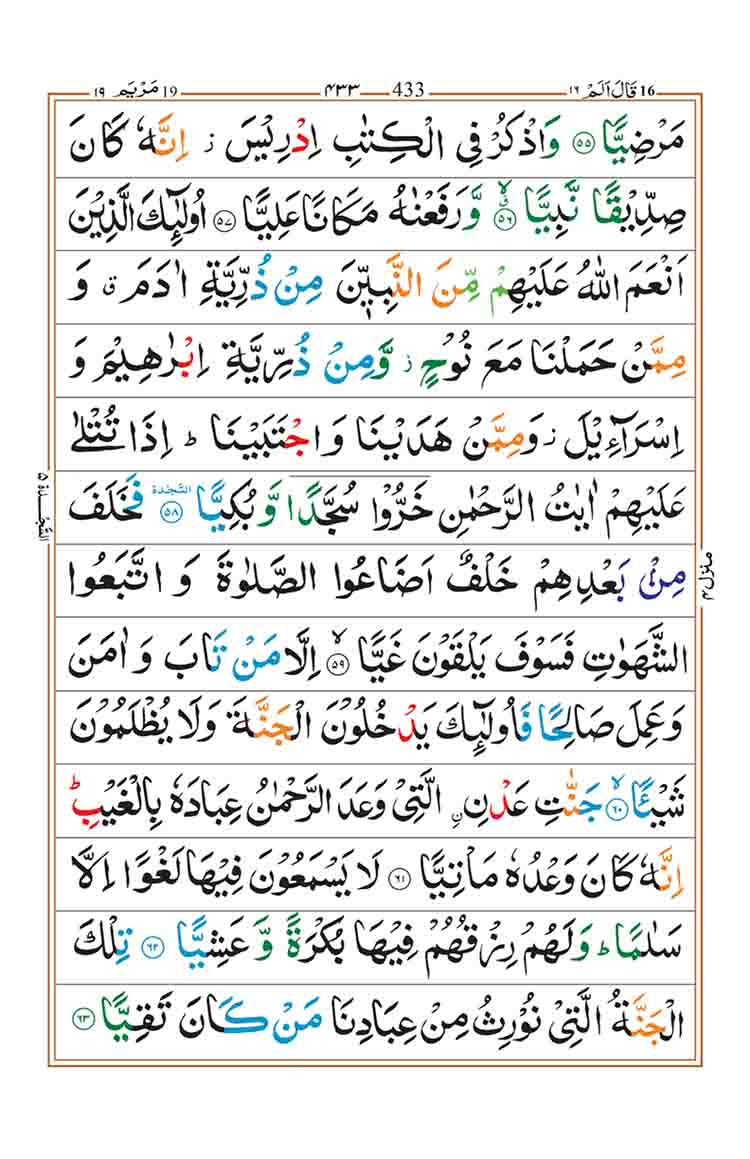 16 قَالَ اَلَمْ ۱۶ 433 ۴۳۳ 19 مَرْيَم ۱۹
مَرْضِيًّا ﴿۵۵﴾ وَاذْكُرْ فِى الْكِتٰبِ اِدْرِيْسَ ز اِنَّهٗ كَانَ
صِدِّيْقًا نَّبِيًّا ﴿۵۶﴾ وَّرَفَعْنٰهُ مَكَانًا عَلِيًّا ﴿۵۷﴾ اُولٰٓئِكَ الَّذِيْنَ
اَنْعَمَ اللّٰهُ عَلَيْهِمْ مِّنَ النَّبِيّٖنَ مِنْ ذُرِّيَّةِ اٰدَمَ ق وَ
مِمَّنْ حَمَلْنَا مَعَ نُوْحٍ ز وَّمِنْ ذُرِّيَّةِ اِبْرٰهِيْمَ وَ
اِسْرَآءِيْلَ ز وَمِمَّنْ هَدَيْنَا وَاجْتَبَيْنَا ط اِذَا تُتْلٰى
عَلَيْهِمْ اٰيٰتُ الرَّحْمٰنِ خَرُّوْا سُجَّدًا وَّبُكِيًّا ﴿۵۸﴾ السَّجْدَة فَخَلَفَ
مِنْ بَعْدِهِمْ خَلْفٌ اَضَاعُوا الصَّلٰوةَ وَاتَّبَعُوا
الشَّهَوٰتِ فَسَوْفَ يَلْقَوْنَ غَيًّا ﴿۵۹﴾ اِلَّا مَنْ تَابَ وَاٰمَنَ
وَعَمِلَ صَالِحًا فَاُولٰٓئِكَ يَدْخُلُوْنَ الْجَنَّةَ وَلَا يُظْلَمُوْنَ
شَيْـًٔا ﴿۶۰﴾ جَنّٰتِ عَدْنِ ۨ الَّتِىْ وَعَدَ الرَّحْمٰنُ عِبَادَهٗ بِالْغَيْبِ ط
اِنَّهٗ كَانَ وَعْدُهٗ مَاْتِيًّا ﴿۶۱﴾ لَا يَسْمَعُوْنَ فِيْهَا لَغْوًا اِلَّا
سَلٰمًا ط وَلَهُمْ رِزْقُهُمْ فِيْهَا بُكْرَةً وَّعَشِيًّا ﴿۶۲﴾ تِلْكَ
الْجَنَّةُ الَّتِىْ نُوْرِثُ مِنْ عِبَادِنَا مَنْ كَانَ تَقِيًّا ﴿۶۳﴾
السَّجْدَة ۵
منزل ۴